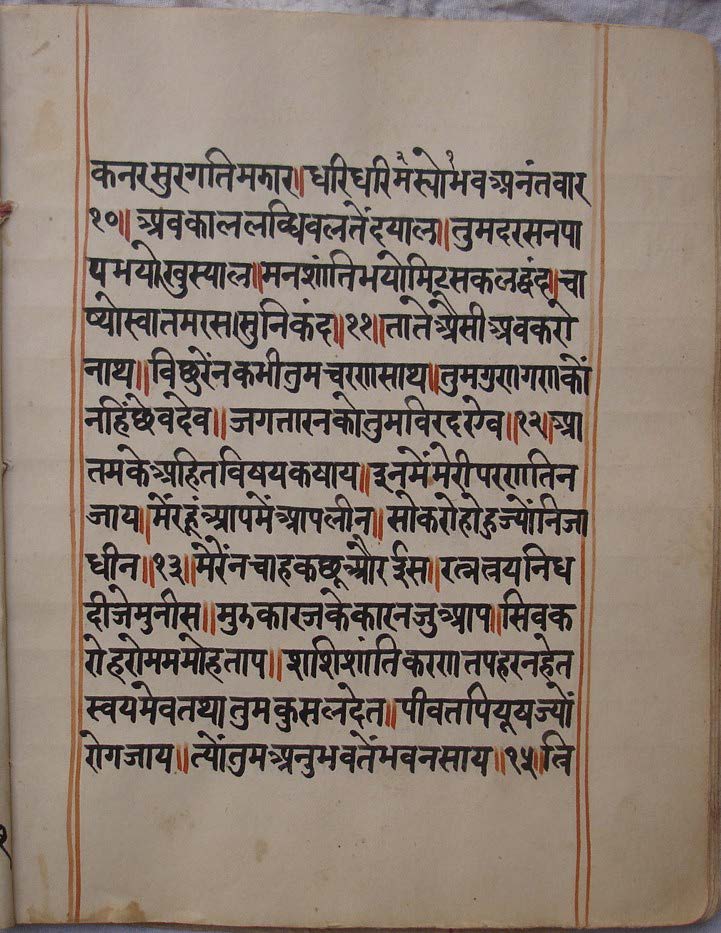 कनरसुरगतिमझार॥धरिधरिमस्योभवअनंतवार
१०॥अवकाललव्धिवलतेंदयाल॥तुमदरसनपा
यभयोखुस्याल॥मनशांतिभयोमिटसकलद्वंद॥चा
ष्योस्वातमरस।सुनिकंद॥११॥तातेअैसीअवकरो
नाथ॥विछुरेंनकभीतुमचरणसाथ॥तुमगुणगणकों
नहिंछेवदेव॥जगतारनकोतुमविरदरगेव॥१२॥आ
तमकेअहितविषयकषाय॥इनमेंमेरीपरणतिन
जाय॥मेंरहूंआपमेंआपलीन॥सोकरोहोहुज्योंनिजा
धीन॥१३॥मेरेंनचाहकछूऔरईस॥रत्नत्रयनिध
दीजेमुनीस॥मुझकारजकेकारनजुआप॥सिवक
रोहरोमममोहताप॥शशिशांतिकरणतपहरनहेत
स्वयमेवतथातुमकुसलदेत॥पीवतपियूषज्यों
रोगजाय॥त्योंतुमअनुभवतेंभवनसाय॥१५॥त्रि